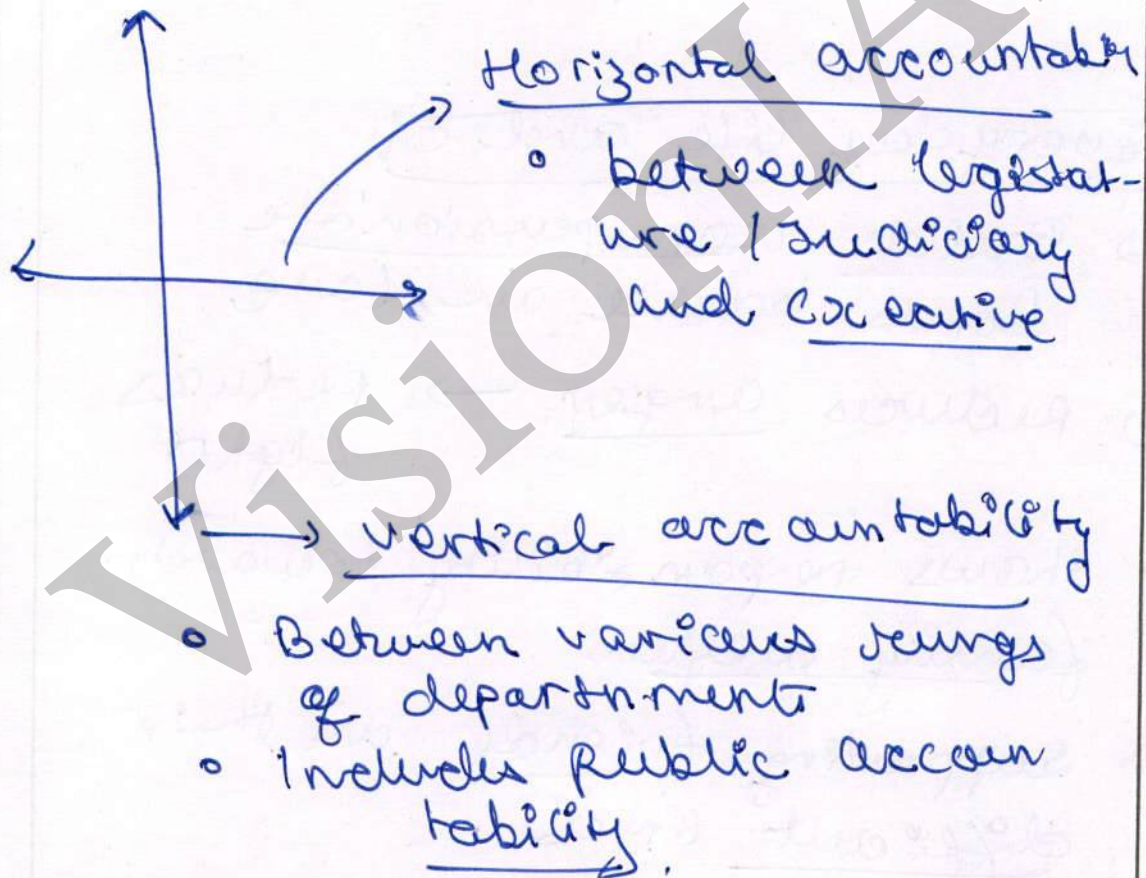 Horizontal accountab
• between legistat-
ure / Judiciary
and Executive
→ vertical accountability
• Between various rungs
of departnment
• Includes Public accoun
tability.
VisionIA